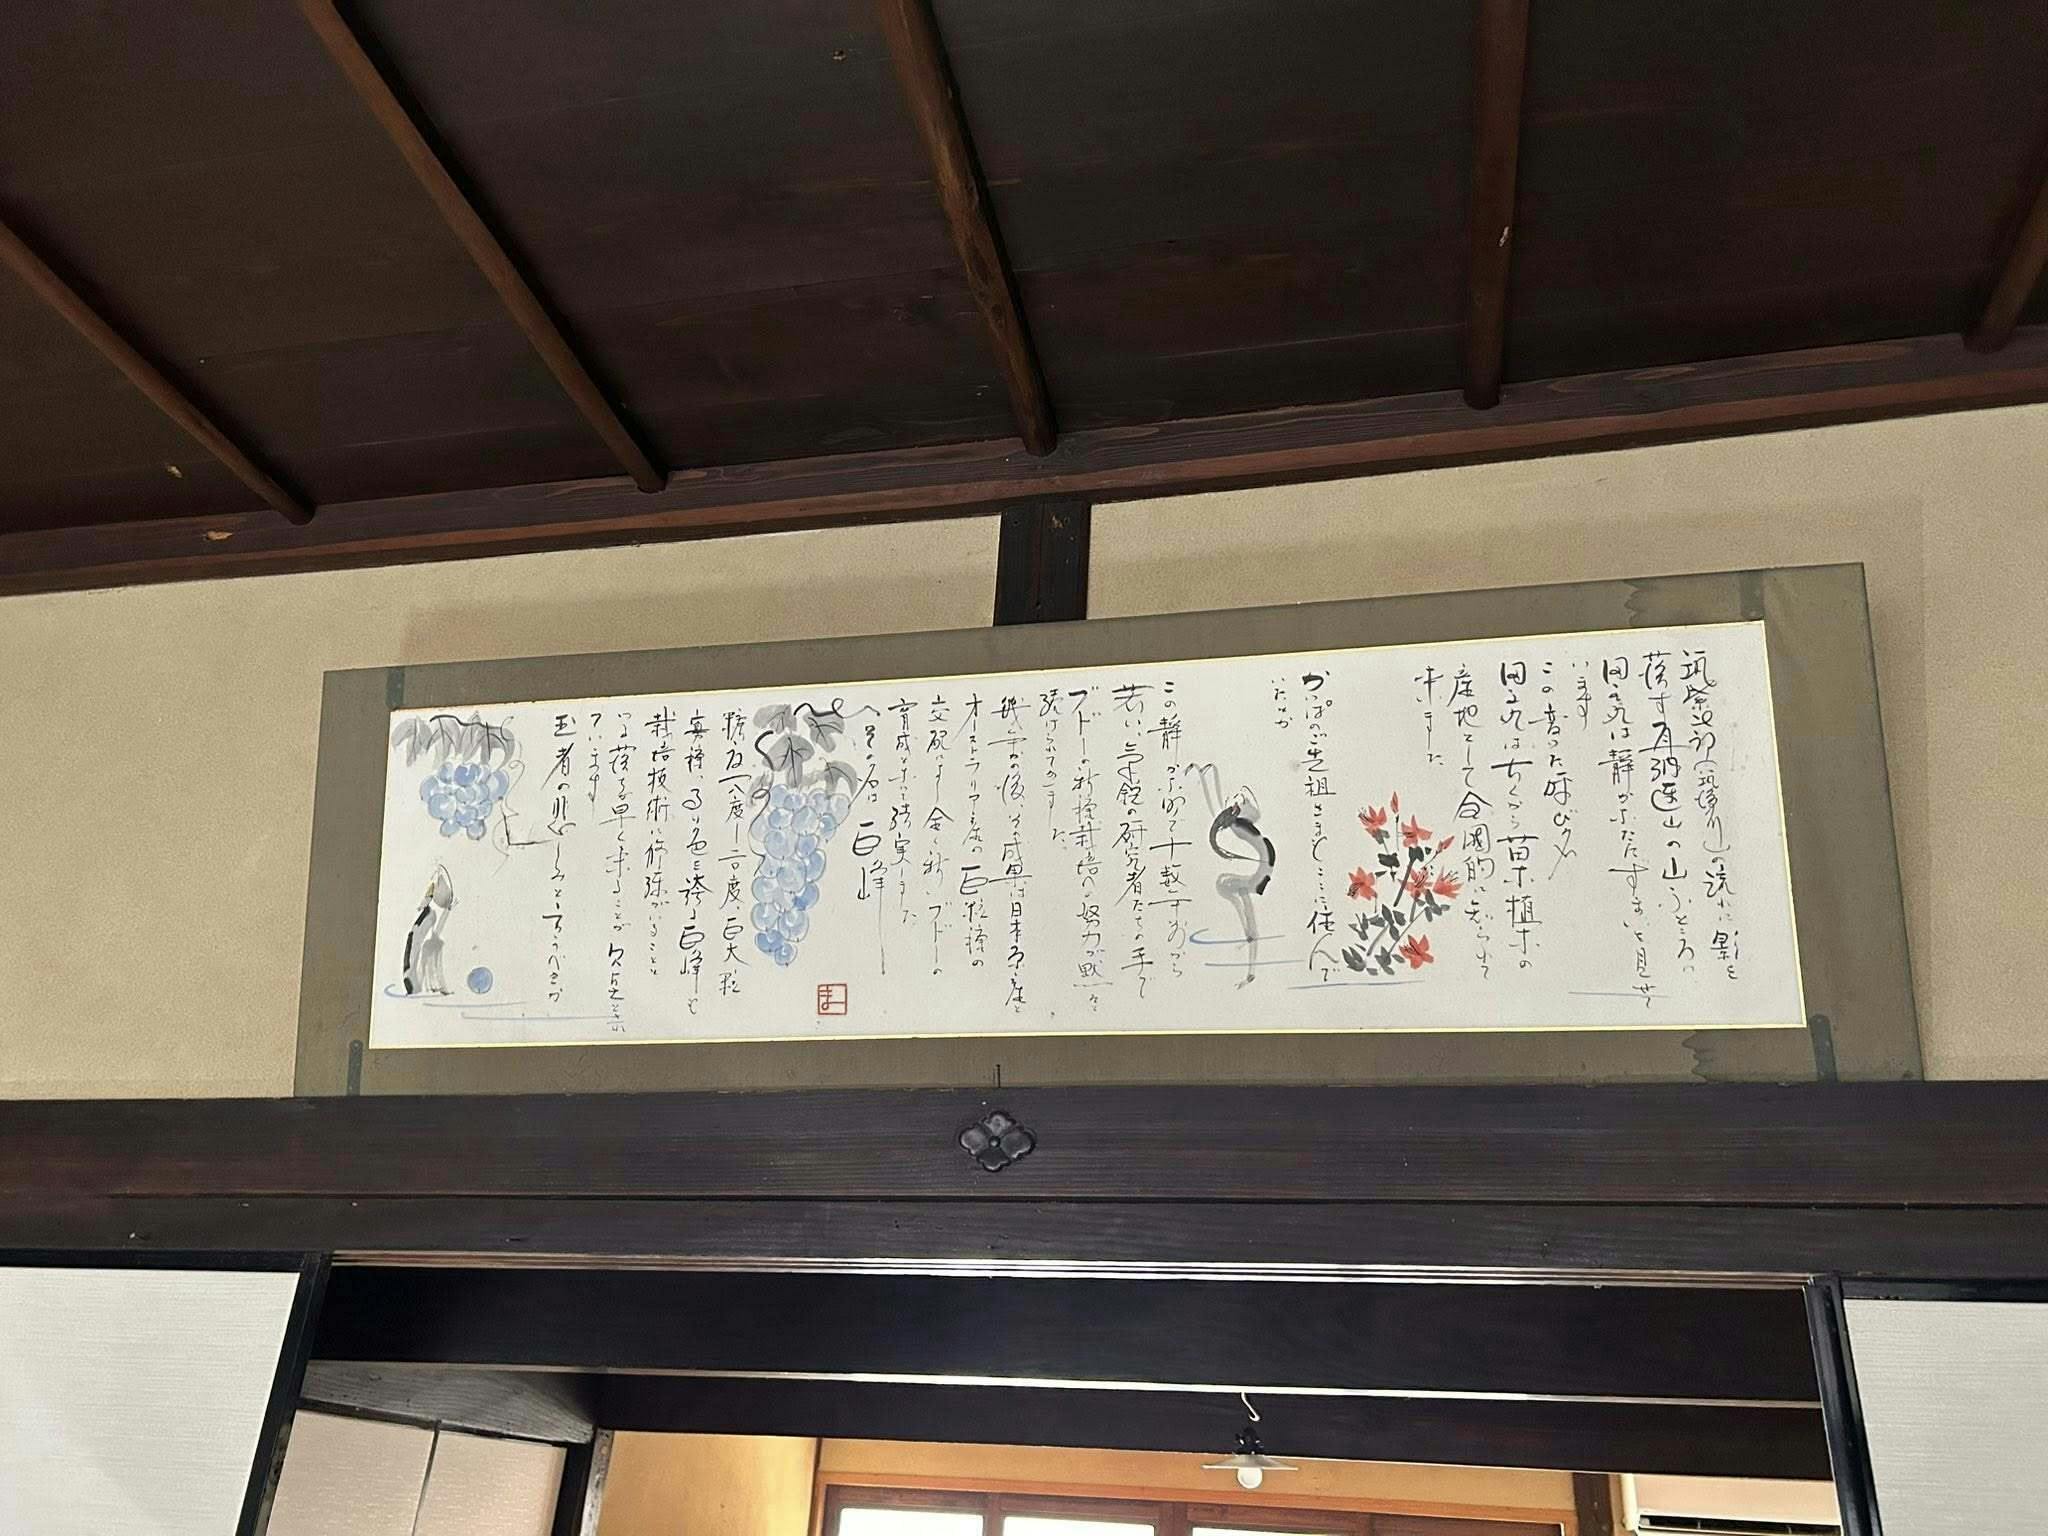 筑紫次郎(筑後川)の流れに影を
落す耳納連山の山ふところに
田主丸は静かなたたずまいを見せて
います
この音った呼び名
田主丸は古くから苗木植木の
産地として全国的に知られて
来ました
かっぱのご先祖さまもここに住んで
いたとか
この静かな町で十数年前から
若い気鋭の研究者たちの手で
ブドーの新種栽培への努力が黙々と
続けられてゐました
幾年かの後、その成果は日本原産と
オーストラリア産の巨粒種の
交配によし全く新しいブドーの
育成となって結実しました
その名は 巨峰
糖度 十八度〜二〇度、巨大粒
真種、高い色を誇る巨峰も
栽培技術に修練がいることと
いる落ちる早く来ることが欠点とされ
ています
王者の悲しみというべきか